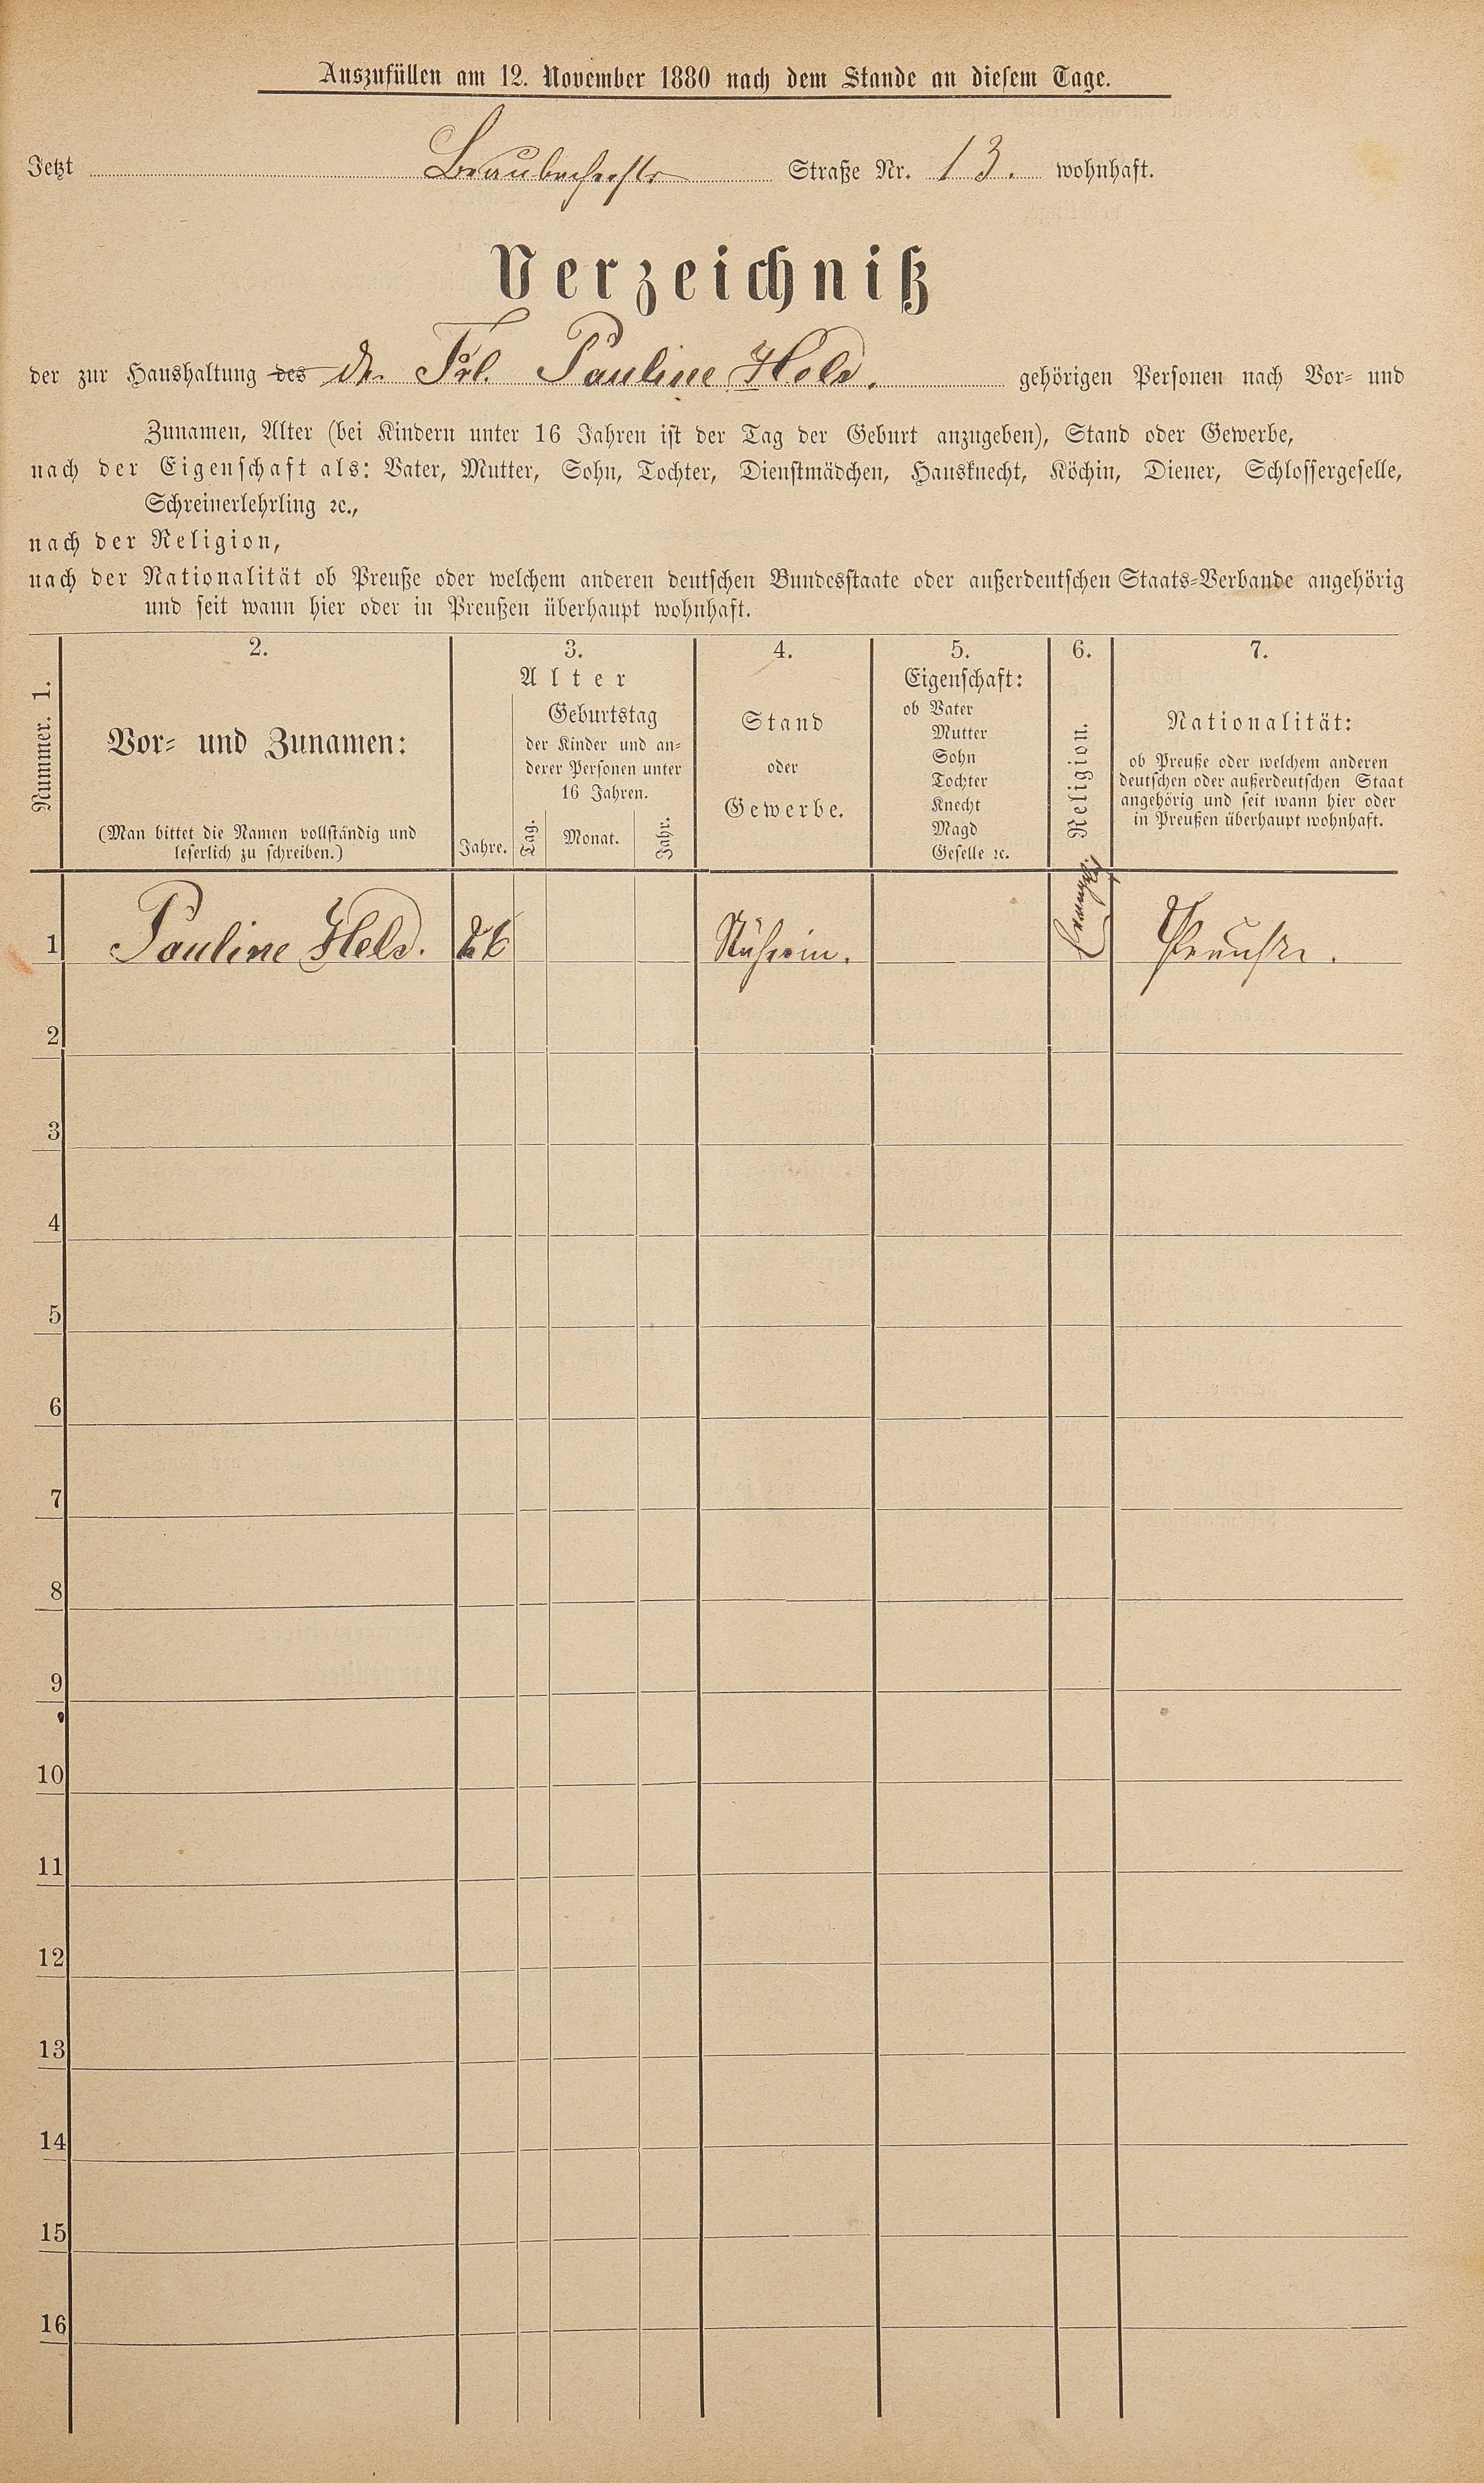 Auszufüllen am 12. November 1880 nach dem Stande an diesem Tage.
Jetzt Braubacherstr Straße Nr. 13. wohnhaft.
Verzeichniß
der zur Haushaltung des der Frl. Pauline Held. gehörigen Personen nach Vor- und
Zunamen, Alter (bei Kindern unter 16 Jahren ist der Tag der Geburt anzugeben), Stand oder Gewerbe,
nach der Eigenschaft als: Vater, Mutter, Sohn, Tochter, Dienstmädchen, Hausknecht, Köchin, Diener, Schlossergeselle,
Schreinerlehrling ꝛc.,
nach der Religion,
nach der Nationalität ob Preuße oder welchem anderen deutschen Bundesstaate oder außerdeutschen Staats-Verbande angehörig
und seit wann hier oder in Preußen überhaupt wohnhaft.
Nummer. 1.
2.
Vor- und Zunamen:
(Man bittet die Namen vollständig und
leserlich zu schreiben.)
3.
Alter
Geburtstag
der Kinder und an-
derer Personen unter
16 Jahren.
Jahre. Tag. Monat. Jahr.
4.
Stand
oder
Gewerbe.
5.
Eigenschaft:
ob Vater
Mutter
Sohn
Tochter
Knecht
Magd
Geselle ꝛc.
6.
Religion.
7.
Nationalität:
ob Preuße oder welchem anderen
deutschen oder außerdeutschen Staat
angehörig und seit wann hier oder
in Preußen überhaupt wohnhaft.
1 Pauline Held. Näherin. Preuße.
2
3
4
5
6
7
8
9
10
11
12
13
14
15
16